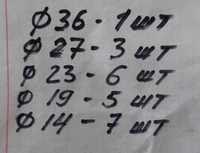 Ø36 - 1 шт
Ø27 - 3 шт
Ø23 - 6 шт
Ø19 - 5 шт
Ø14 - 7 шт